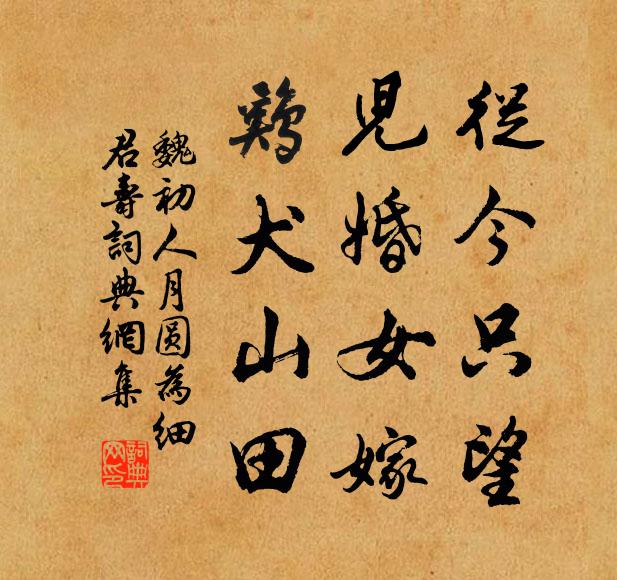 從今只望
兒婚女嫁
鷄犬山田
魏初人月圓為細
君壽詞典網集
詞典網印